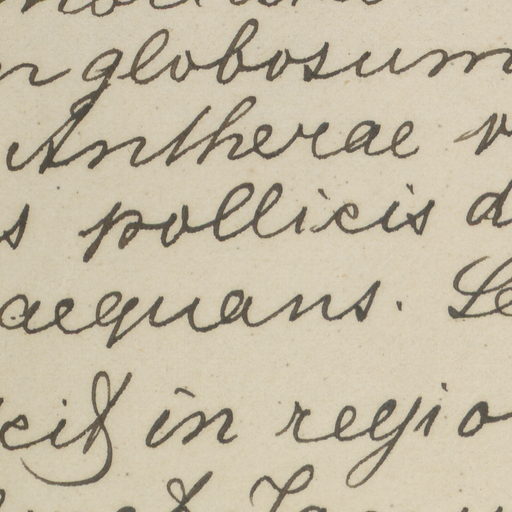 globosum
Antherae
s pollicis d
aequans. Se
cit in regio